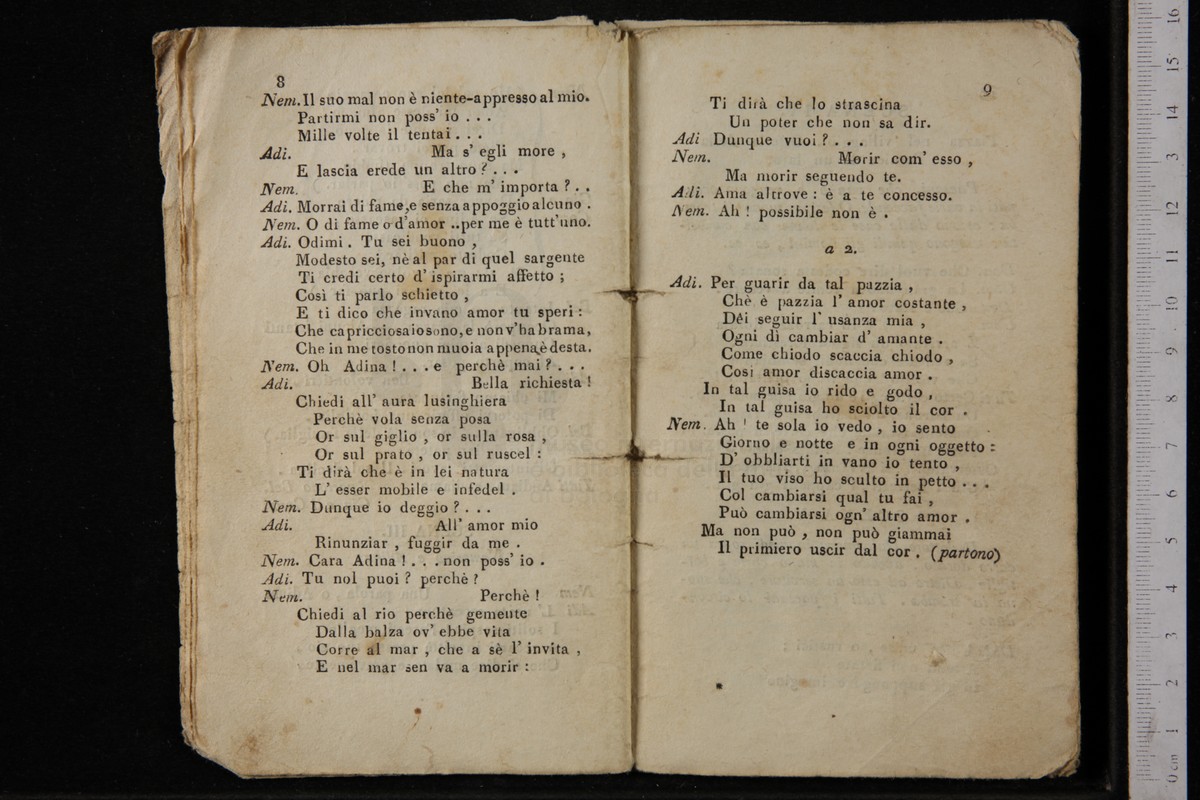 8
Nem. Il suo mal non è niente-appresso al mio.
Partirmi non poss' io . . .
Mille volte il tentai . . .
Adi. Ma s' egli more ,
E lascia erede un altro ? . . .
Nem. E che m' importa ? . .
Adi. Morrai di fame,e senza appoggio alcuno .
Nem. O di fame o d'amor ..per me è tutt'uno.
Adi. Odimi . Tu sei buono ,
Modesto sei, nè al par di quel sargente
Ti credi certo d' ispirarmi affetto ;
Così ti parlo schietto ,
E ti dico che invano amor tu speri :
Che capricciosa io sono, e non v'ha brama,
Che in me tosto non muoia appena è desta.
Nem. Oh Adina ! . . . e perchè mai ? . . .
Adi. Bella richiesta !
Chiedi all' aura lusinghiera
Perchè vola senza posa
Or sul giglio , or sulla rosa ,
Or sul prato , or sul ruscel :
Ti dirà che è in lei natura
L' esser mobile e infedel .
Nem. Dunque io deggio ? . . .
Adi. All' amor mio
Rinunziar , fuggir da me .
Nem. Cara Adina ! . . . non poss' io .
Adi. Tu nol puoi ? perchè ?
Nem. Perchè !
Chiedi al rio perchè gemente
Dalla balza ov' ebbe vita
Corre al mar , che a sè l' invita ,
E nel mar sen va a morir :
9
Ti dirà che lo strascina
Un poter che non sa dir.
Adi Dunque vuoi ? . . .
Nem. Morir com' esso ,
Ma morir seguendo te.
Adi. Ama altrove : è a te concesso.
Nem. Ah ! possibile non è .
a 2.
Adi. Per guarir da tal pazzia ,
Chè è pazzia l' amor costante ,
Dêi seguir l' usanza mia ,
Ogni dì cambiar d' amante .
Come chiodo scaccia chiodo ,
Così amor discaccia amor .
In tal guisa io rido e godo ,
In tal guisa ho sciolto il cor .
Nem. Ah ! te sola io vedo , io sento
Giorno e notte e in ogni oggetto :
D' obbliarti in vano io tento ,
Il tuo viso ho sculto in petto . . .
Col cambiarsi qual tu fai ,
Può cambiarsi ogn' altro amor .
Ma non può , non può giammai
Il primiero uscir dal cor . (partono)
16
15
14
13
12
11
10
9
8
7
6
5
4
3
2
1
0 cm